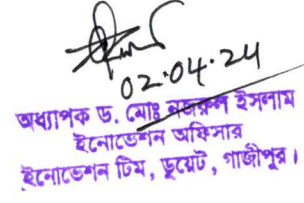 02.04.24
অধ্যাপক ড. মোঃ নজরুল ইসলাম
ইনোভেশন অফিসার
ইনোভেশন টিম, ডুয়েট, গাজীপুর।